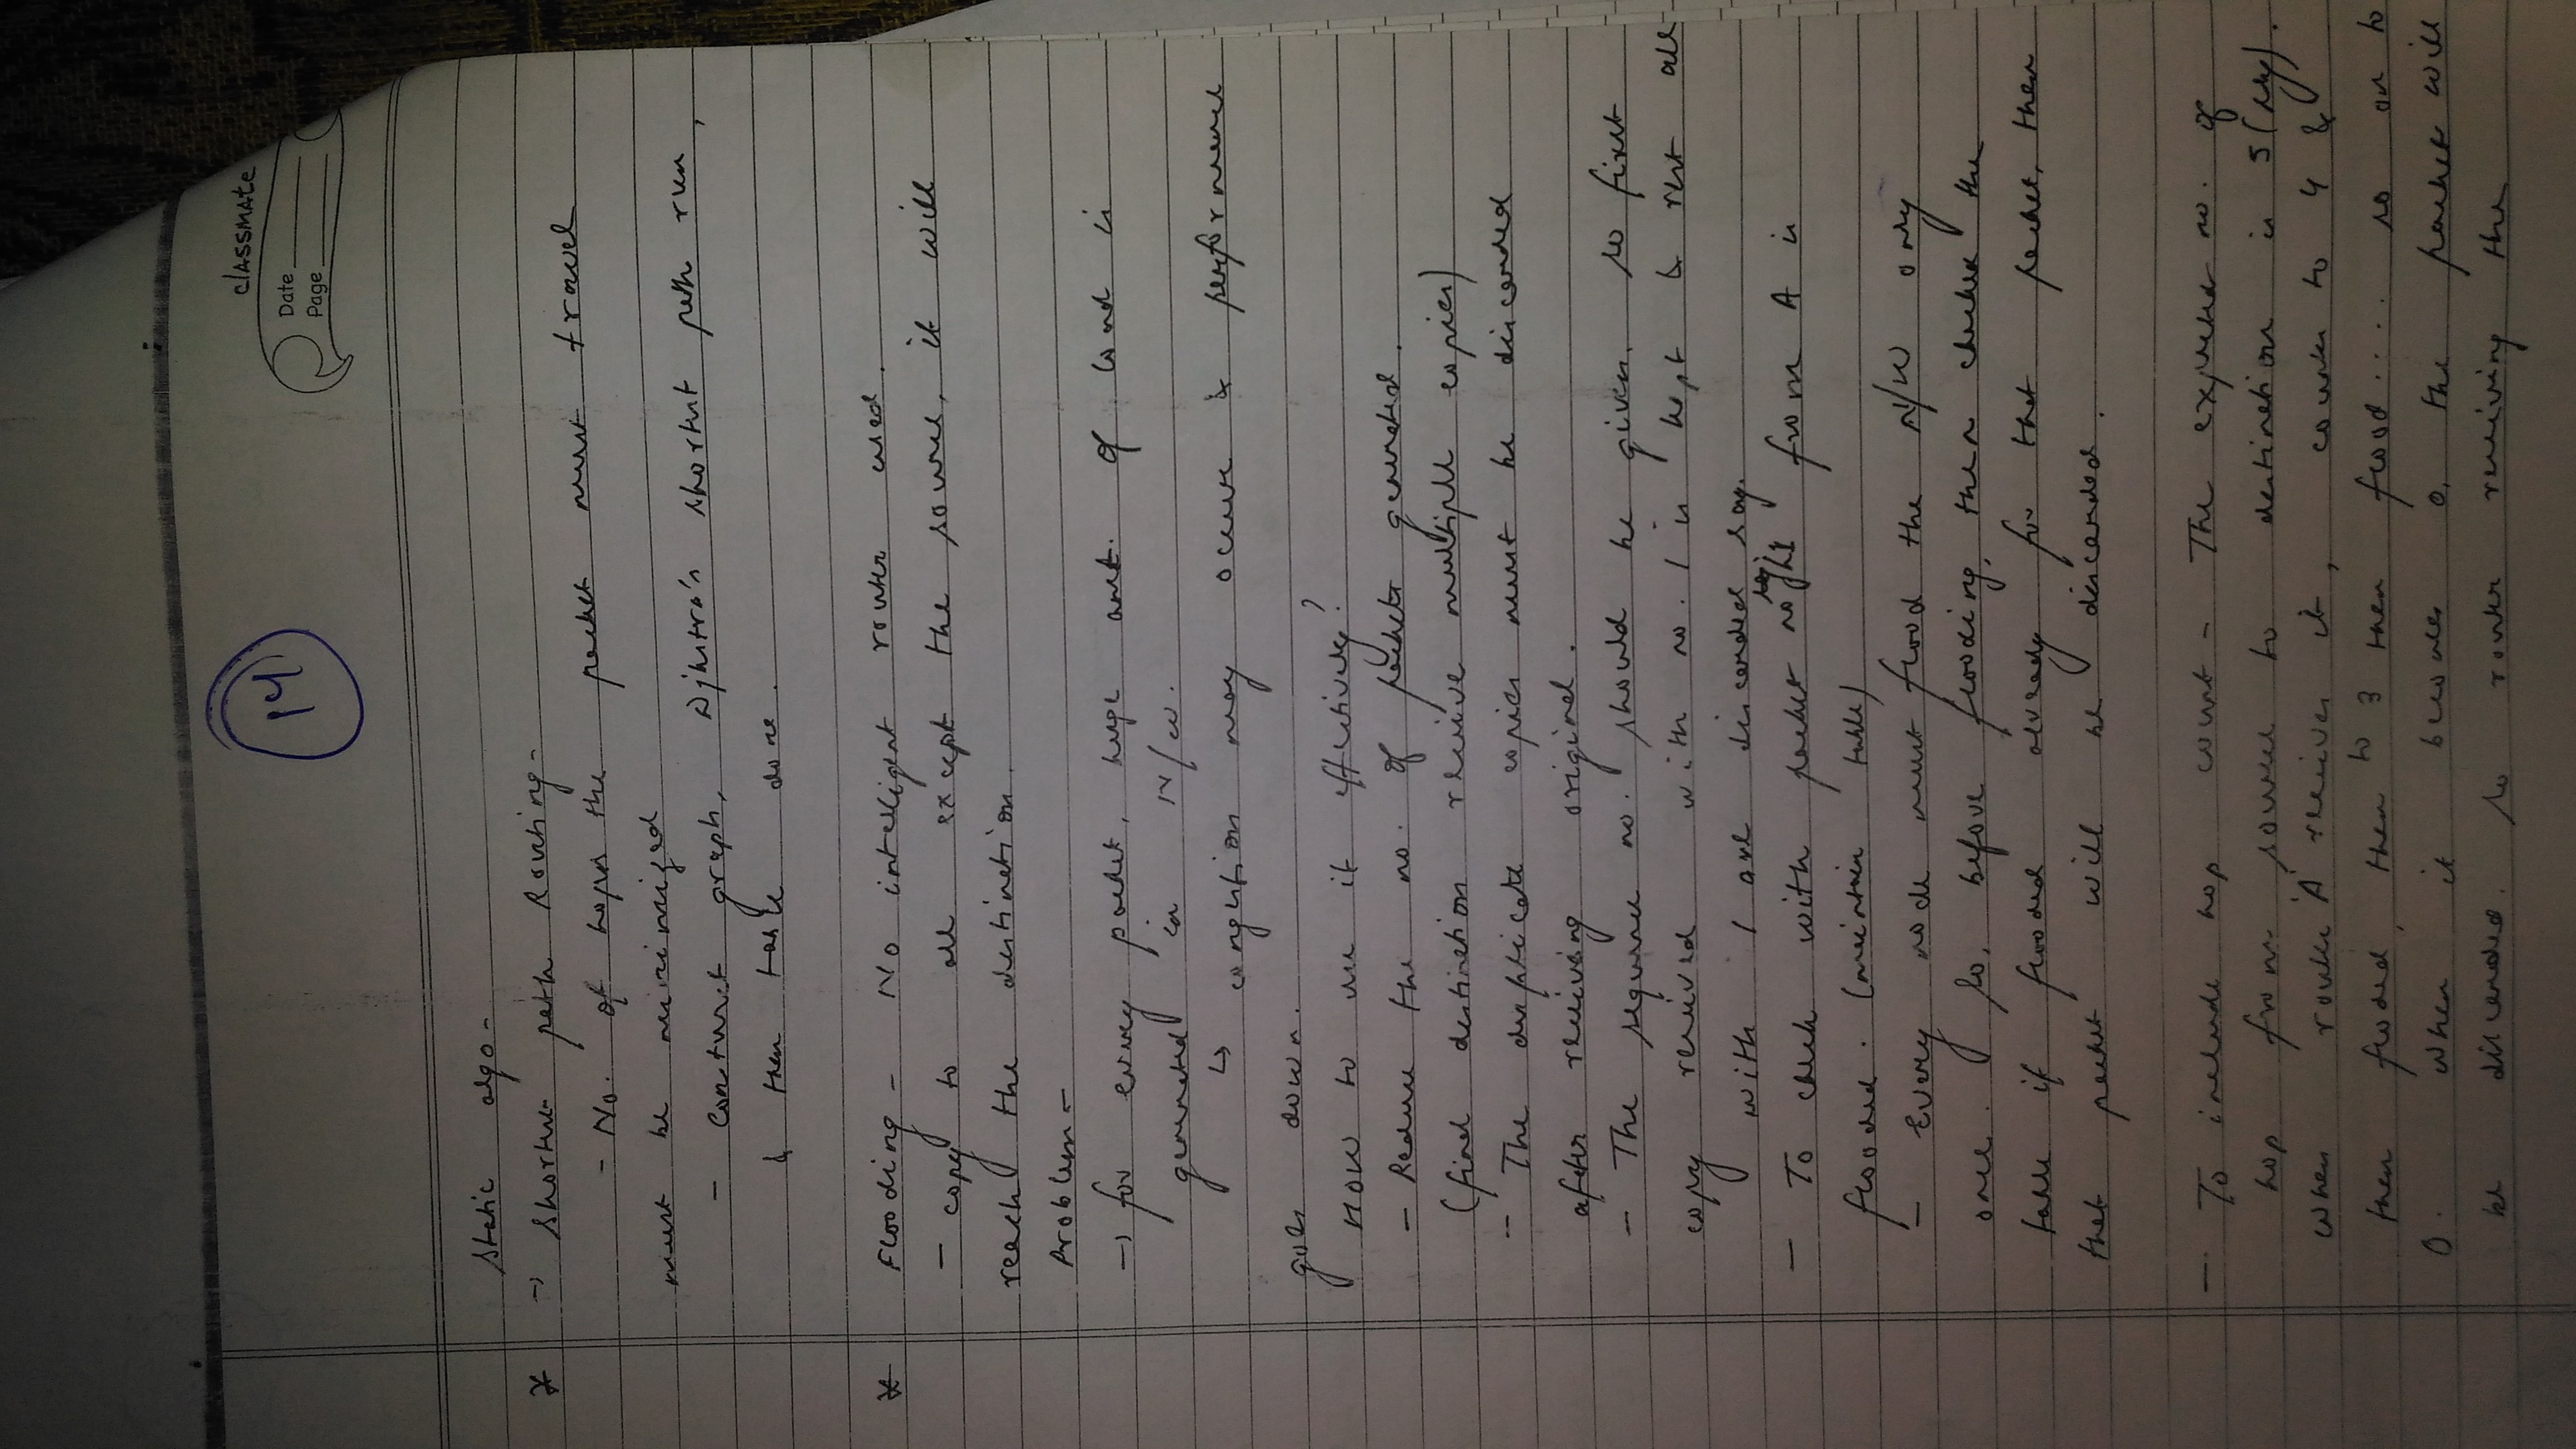 classmate
Date
Page
14
Static algo-
* → Shortest path Routing-
- No. of hops the packet must travel
must be minimized
- Construct graph, Dijkstra's shortest path run,
& then task done.
* Flooding - No intelligent router used.
- copy to all except the source, it will
reach the destination.
Problem-
→ for every packet, huge amt. of load is
generated in N/w.
↳ congestion may occur & performance
goes down.
How to use it effectively?
- Reduce the no. of packets generated.
(final destination receive multiple copies)
- The duplicate copies must be discarded
after receiving original.
- The sequence no. should be given, so first
copy received with no. 1 is kept & rest all
with 1 are discarded say.
- To check with packet no. 1 from A is
flooded. (maintain table)
- Every node must flood the N/W only
once. So, before flooding, then checks the
table if flooded already for that packet, then
that packet will be discarded.
- To include hop count - The expected no. of
hop from source to destination is 5 (say).
when router A receives it, counter to 4 &
then flooded, then to 3 then flood.... so on to
0. when it becomes 0, the packet will
be discarded. So router receiving the